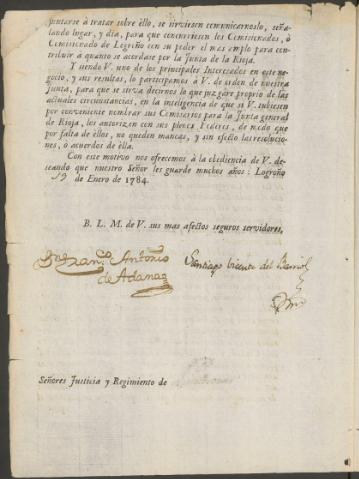 juntarse à tratar sobre éllo, se sirviesen comunicarnoslo, seña-
lando lugar, y dia, para que concurriesen los Comisionados, ò
Comisionado de Logroño con su poder el mas amplo para con-
tribuir à quanto se acordase por la Junta de la Rioja.
Y siendo V. uno de los principales Interesados en este ne-
gocio, y sus resultas, lo participamos à V. de orden de nuestra
Junta, para que se sirva decirnos lo que juzgáre proprio de las
actuales circunstancias, en la inteligencia de que si V. tubiesen
por conveniente nombrar sus Comisarios para la Junta general
de Rioja, los autorizen con sus plenos Poderes, de modo que
por falta de éllos, no queden mancas, y sin efecto las resolucio-
nes, ò acuerdos de élla.
Con este motivo nos ofrecemos à la obediencia de V. de-
seando que nuestro Señor les guarde muchos años: Logroño
19 de Enero de 1784.
B. L. M. de V. sus mas afectos seguros servidores,
Antonio Santiago Vicente del Barrio
de Adana
Señores Justicia y Regimiento de